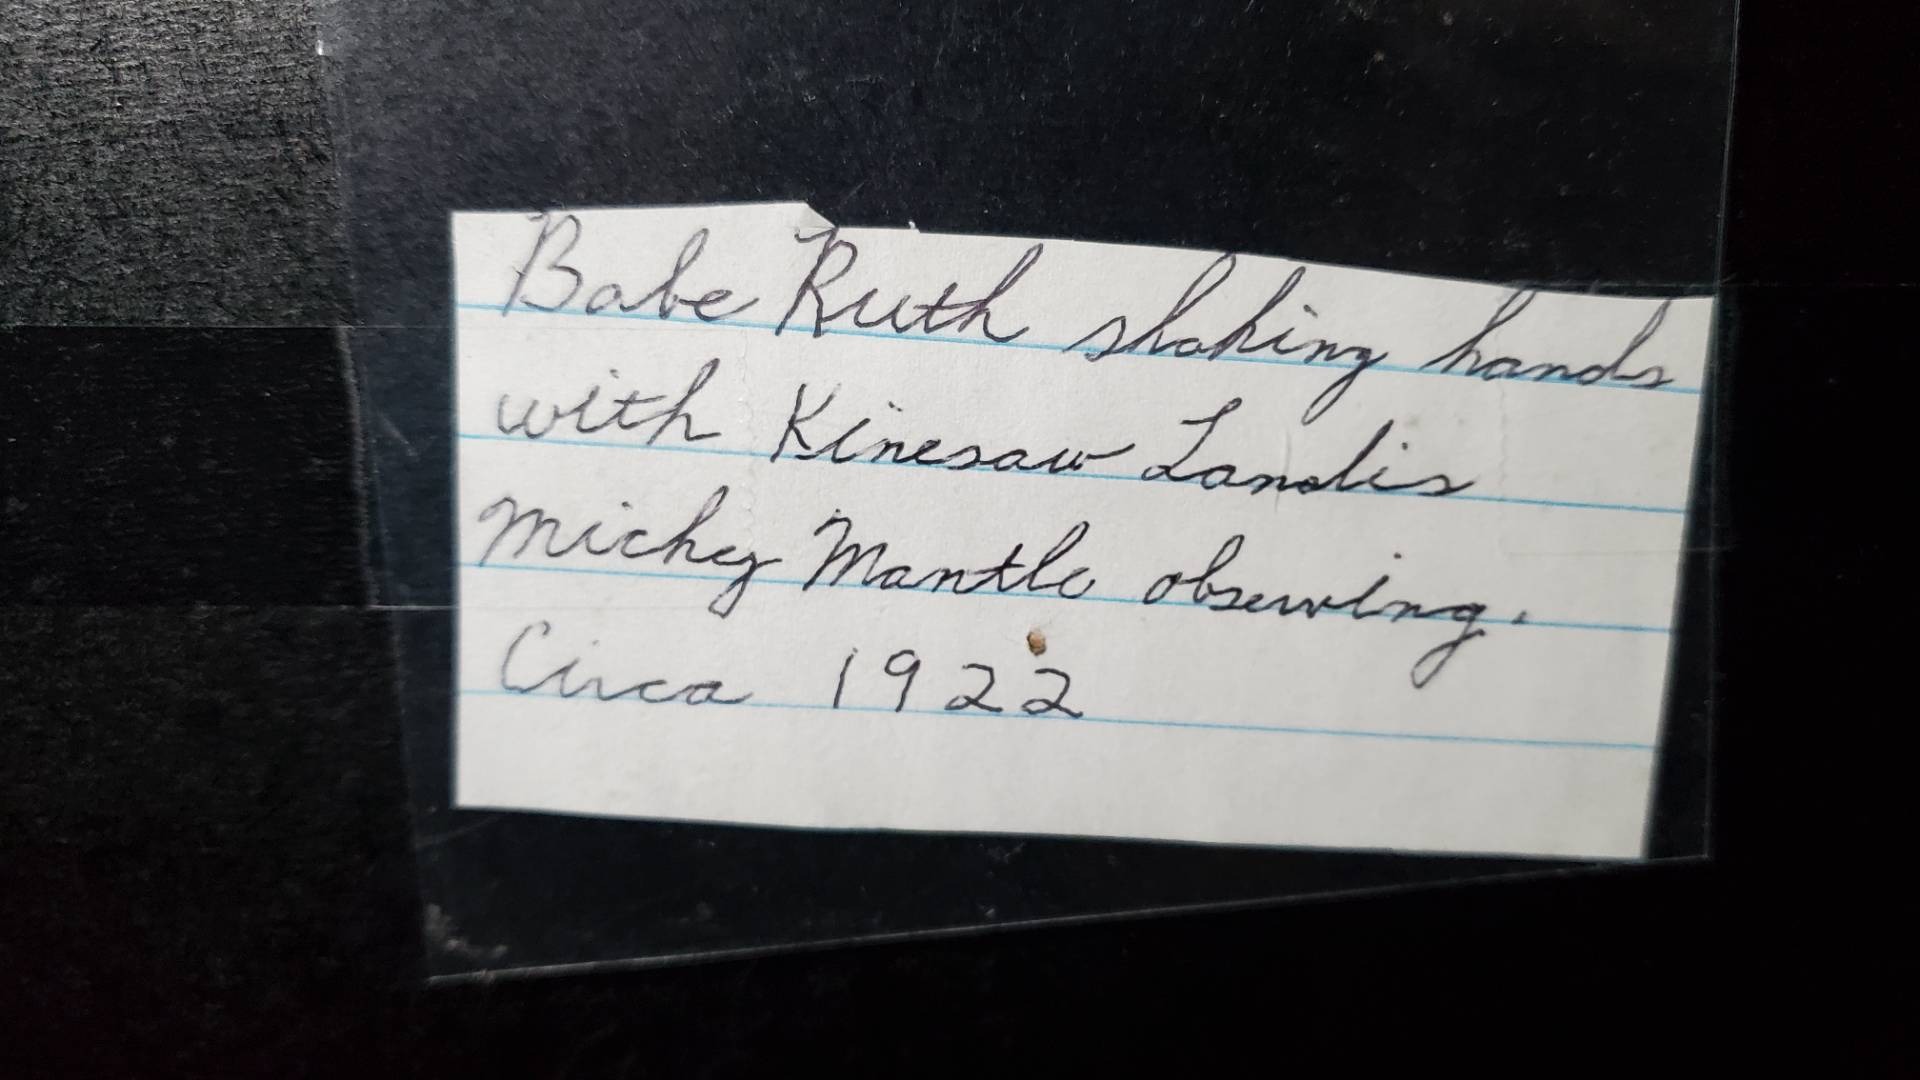 Babe Ruth shaking hands
with Kinesaw Landis
Micky Mantle observing.
Circa 1922